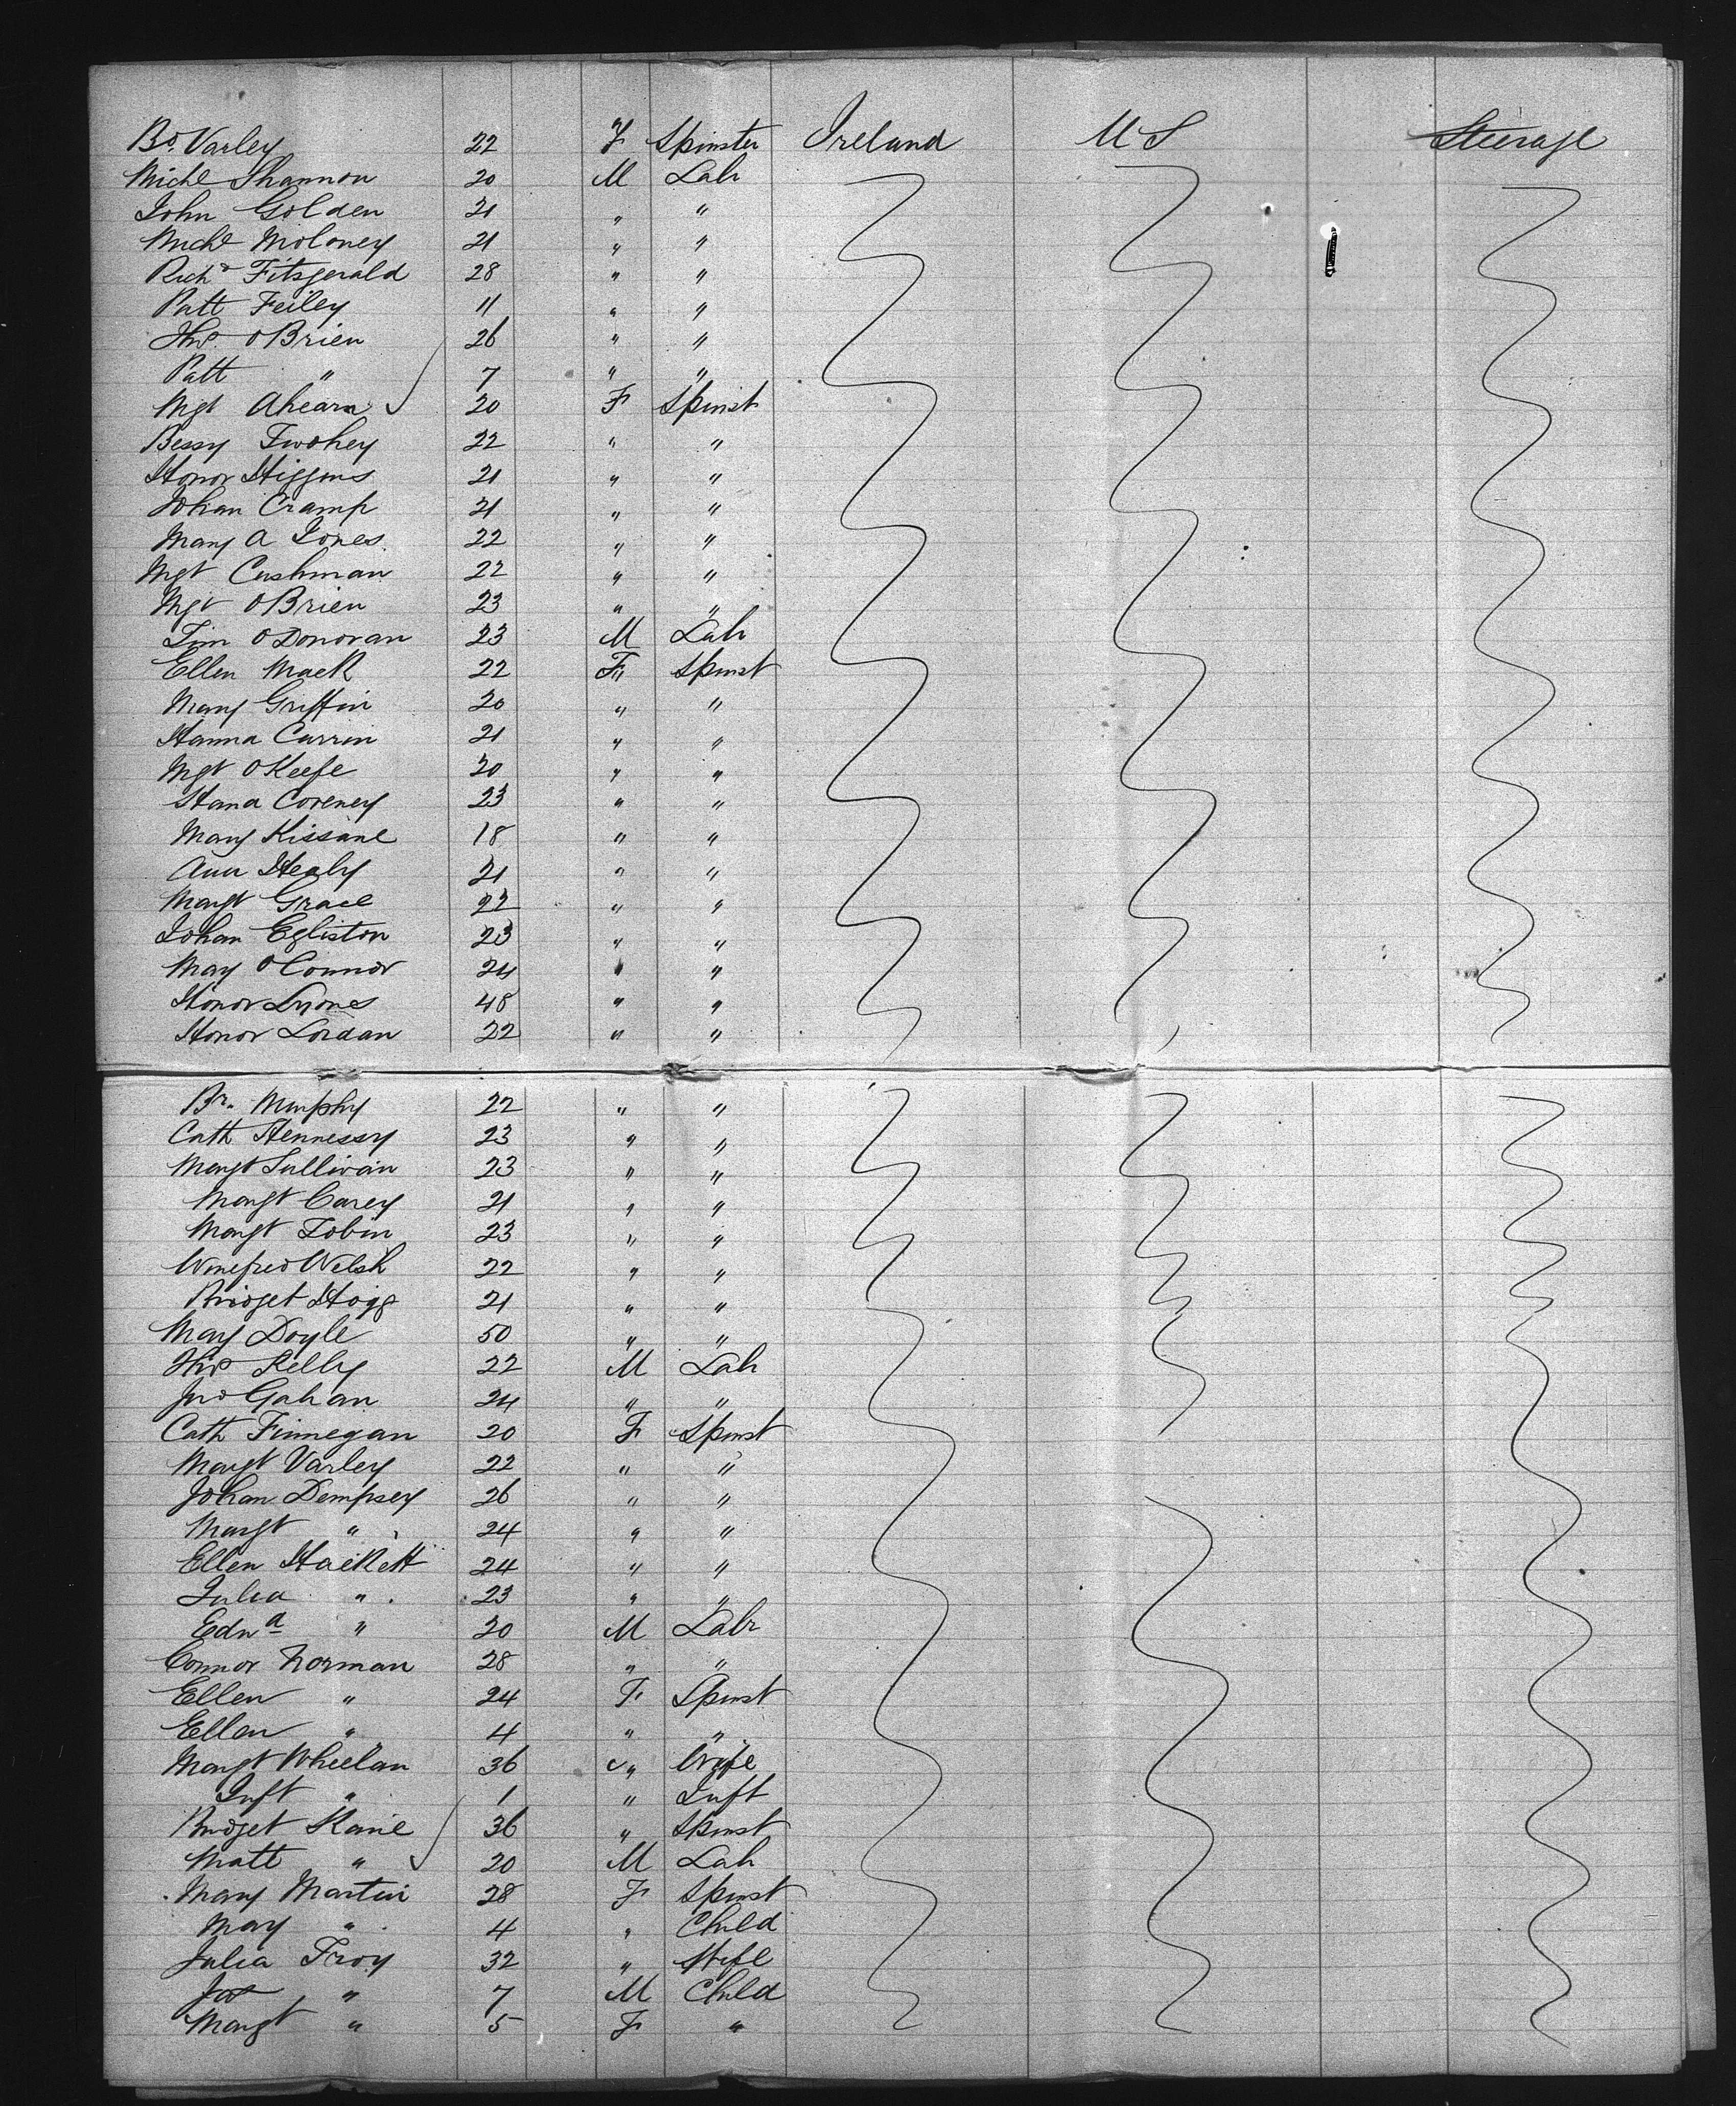 Bd. Varley 22 F Spinster Ireland U S Steerage
Michl Shannon 20 M Labr
John Golden 21 " "
Michl Moloney 21 " "
Richd Fitzgerald 28 " "
Patt Feiley 11 " "
Thos. OBrien 26 " "
Patt " 7 " "
Mgt Ahearn 20 F Spinst
Bessy Twohey 22 " "
Honor Higgins 21 " "
Johan Cramp 21 " "
Mary A Jones 22 " "
Mgt Cushman 22 " "
Mgt OBrien 23 " "
Tim ODonovan 23 M Labr
Ellen Mack 22 F " Spinst
Mary Griffin 20 " "
Hanna Currin 21 " "
Mgt OKeefe 20 " "
Hana Coreney 23 " "
Mary Kissane 18 " "
Ann Healy 21 " "
Margt Grace 22 " "
Johan Egliston 23 " "
Mary OConnor 24 " "
Honor Lyones 48 " "
Honor Lordan 22 " "
Br. Murphy 22 " "
Cath Hennessy 23 " "
Margt Sullivan 23 " "
Margt Carey 21 " "
Margt Tobin 23 " "
Winefred Welsh 22 " "
Bridget Hogg 21 " "
Mary Doyle 50 " "
Thos Kelly 22 M Labr
Jno Gahan 24 " "
Cath Finnegan 20 F Spinst
Margt Varley 22 " "
Johan Dempsey 26 " "
Margt " 24 " "
Ellen Hackett 24 " "
Julia " 23 " "
Edwd " 20 M Labr
Connor Norman 28 " "
Ellen " 24 F Spinst
Ellen " 4 " "
Margt Wheelan 36 " Wife
Inft " 1 " Inft
Bridget Kane 36 " Spinst
Matt " 20 M Labr
Mary Martin 28 F Spinst
Mary " 4 " Child
Julia Troy 32 " Wife
Jas " 7 M Child
Margt " 5 F "